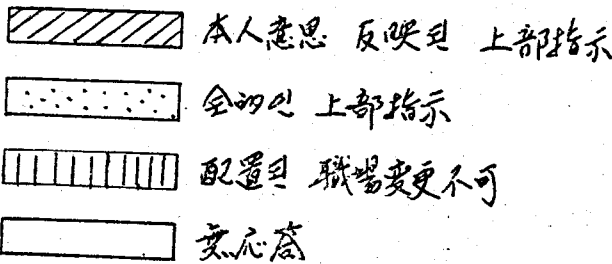 本人意思 反映된 上部指示
全的인 上部指示
配置된 職場変更不可
無応答